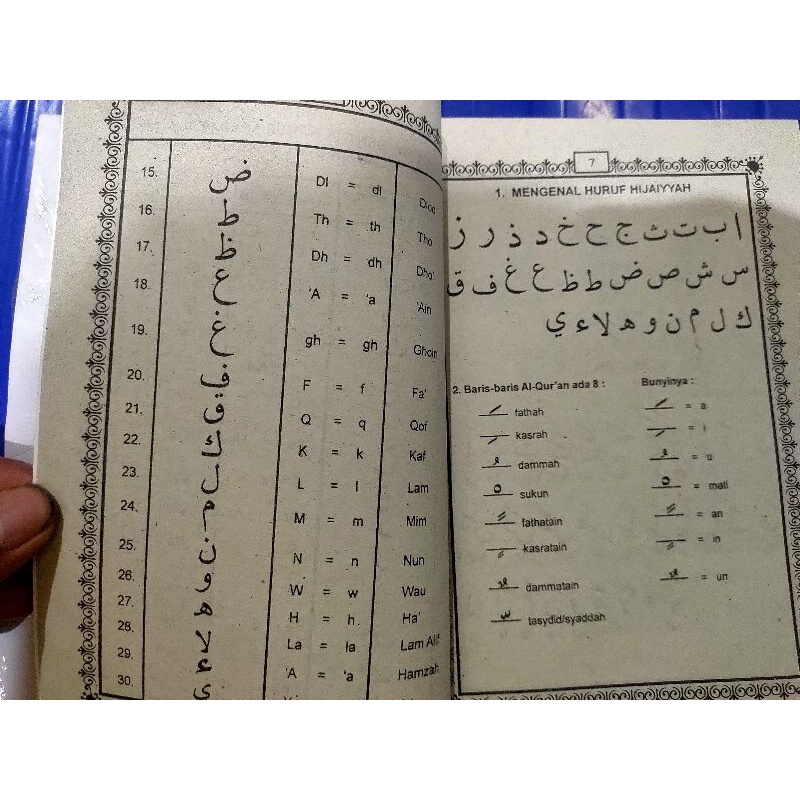 15. ض Dl = dl
16. ط Th = th Tho
17. ظ Dh = dh Dho'
18. ع 'A = 'a 'Ain
19. غ gh = gh Ghoin
20. ف F = f Fa'
21. ق Q = q Qof
22. ك K = k Kaf
23. ل L = l Lam
24. م M = m Mim
25. ن N = n Nun
26. و W = w Wau
27. ه H = h Ha'
28. لا La = la Lam Alif
29. ء 'A = 'a Hamzah
30. ي
7
1. MENGENAL HURUF HIJAIYYAH
ا ب ت ث ج ح خ د ذ ر ز
س ش ص ض ط ظ ع غ ف ق
ك ل م ن و ه لا ء ي
2. Baris-baris Al-Qur'an ada 8 : Bunyinya :
ـَـ fathah ـَـ = a
ـِـ kasrah ـِـ = i
ـُـ dammah ـُـ = u
ـْـ sukun ـْـ = mati
ـًـ fathatain ـًـ = an
ـٍـ kasratain ـٍـ = in
ـٌـ dammatain ـٌـ = un
ـّـ tasydid/syaddah